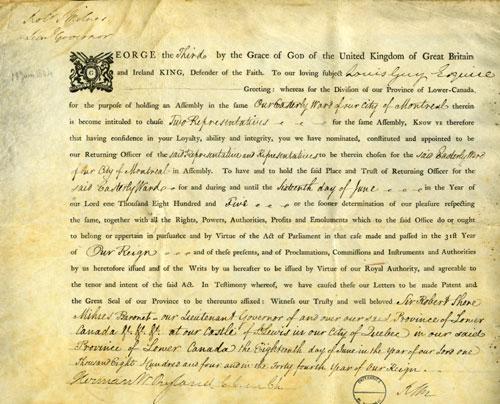 Robt S Milnes
Lieut Governor
GEORGE the Third by the Grace of GOD of the United Kingdom of Great Britain
and Ireland KING, Defender of the Faith. To our loving subject Louis Guy Esquire
Greeting: whereas for the Division of our Province of Lower-Canada,
for the purpose of holding an Assembly in the same Our Easterly Ward of our City of Montreal therein
is become intituled to chuse Two Representatives for the same Assembly, KNOW YE therefore
that having confidence in your Loyalty, ability and integrity, you we have nominated, constituted and appointed to be
our Returning Officer of the said Representative and Representatives to be therein chosen for the said Easterly Ward
of our City of Montreal in Assembly. To have and to hold the said Place and Trust of Returning Officer for the
said Easterly Ward for and during and until the Sixteenth day of June in the Year of
our Lord one Thousand Eight Hundred and Five or the sooner determination of our pleasure respecting
the same, together with all the Rights, Powers, Authorities, Profits and Emoluments which to the said Office do or ought
to belong or appertain in pursuance and by Virtue of the Act of Parliament in that case made and passed in the 31st Year
of Our Reign and of these presents, and of Proclamations, Commissions and Instruments and Authorities
by us heretofore issued and of the Writs by us hereafter to be issued by Virtue of our Royal Authority, and agreeable to
the tenor and intent of the said Act. In Testimony whereof, we have caused these our Letters to be made Patent and
the Great Seal of our Province to be thereunto affixed: Witness our Trusty and well beloved Sir Robert Shore
Milnes Baronet our Lieutenant Governor of and over our said Province of Lower
Canada &c. &c. &c. at our Castle of St Lewis in our City of Quebec in our said
Province of Lower Canada the Eighteenth day of June in the Year of our Lord one
Thousand Eight Hundred and four and in the Forty fourth Year of our Reign
Herman W. Ryland